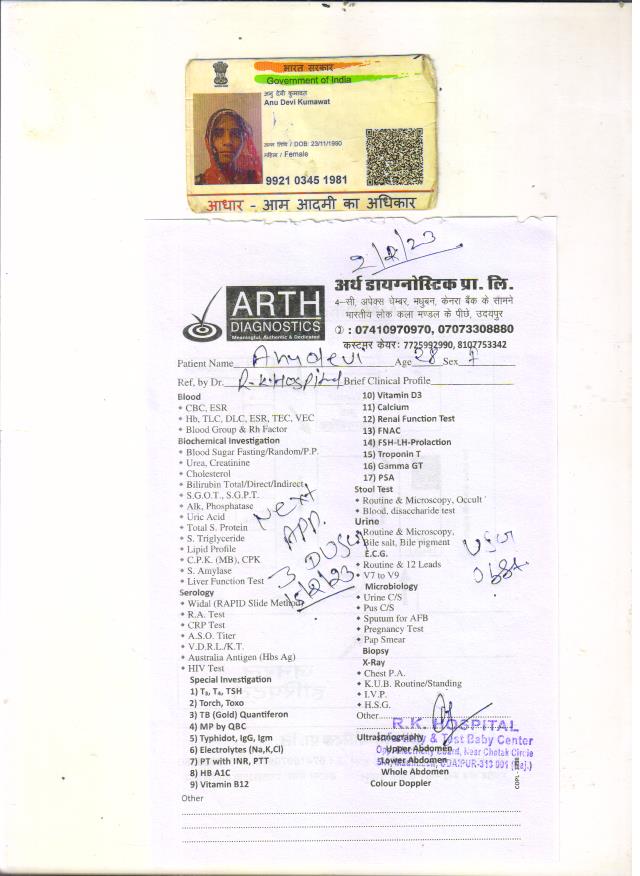 भारत सरकार
Government of India
अनु देवी कुमावत
Anu Devi Kumawat
जन्म तिथि / DOB: 23/11/1990
महिला / Female
9921 0345 1981
आधार - आम आदमी का अधिकार
2/2/23
ARTH
DIAGNOSTICS
Meaningful, Authentic & Dedicated
अर्थ डायग्नोस्टिक प्रा. लि.
4-सी, अपेक्स चेम्बर, मधुबन, केनरा बैंक के सामने
भारतीय लोक कला मण्डल के पीछे, उदयपुर
: 07410970970, 07073308880
कस्टमर केयर: 7725992990, 8107753342
Patient Name Anudevi Age 28 Sex F
Ref, by Dr. R-K Hospital Brief Clinical Profile
Blood
CBC, ESR
Hb, TLC, DLC, ESR, TEC, VEC
Blood Group & Rh Factor
Biochemical Investigation
Blood Sugar Fasting/Random/P.P.
Urea, Creatinine
Cholesterol
Bilirubin Total/Direct/Indirect
S.G.O.T., S.G.P.T.
Alk, Phosphatase
Uric Acid
Total S. Protein
S. Triglyceride
Lipid Profile
C.P.K. (MB), CPK
S. Amylase
Liver Function Test
Serology
Widal (RAPID Slide Method)
R.A. Test
CRP Test
A.S.O. Titer
V.D.R.L./K.T.
Australia Antigen (Hbs Ag)
HIV Test
Special Investigation
1) T₃, T₄, TSH
2) Torch, Toxo
3) TB (Gold) Quantiferon
4) MP by QBC
5) Typhidot, IgG, Igm
6) Electrolytes (Na,K,Cl)
7) PT with INR, PTT
8) HB A1C
9) Vitamin B12
Other
10) Vitamin D3
11) Calcium
12) Renal Function Test
13) FNAC
14) FSH-LH-Prolaction
15) Troponin T
16) Gamma GT
17) PSA
Stool Test
Routine & Microscopy, Occult
Blood, disaccharide test
Urine
Routine & Microscopy,
Bile salt, Bile pigment
E.C.G.
Routine & 12 Leads
V7 to V9
Microbiology
Urine C/S
Pus C/S
Sputum for AFB
Pregnancy Test
Pap Smear
Biopsy
X-Ray
Chest P.A.
K.U.B. Routine/Standing
I.V.P.
H.S.G.
Other
Ultrasonography
Upper Abdomen
Lower Abdomen
Whole Abdomen
Colour Doppler
Next
APP.
R.K. HOSPITAL
& Test Baby Center
Opp. Electricity Board, Near Chetak Circle
UDAIPUR-313 001 (Raj.)